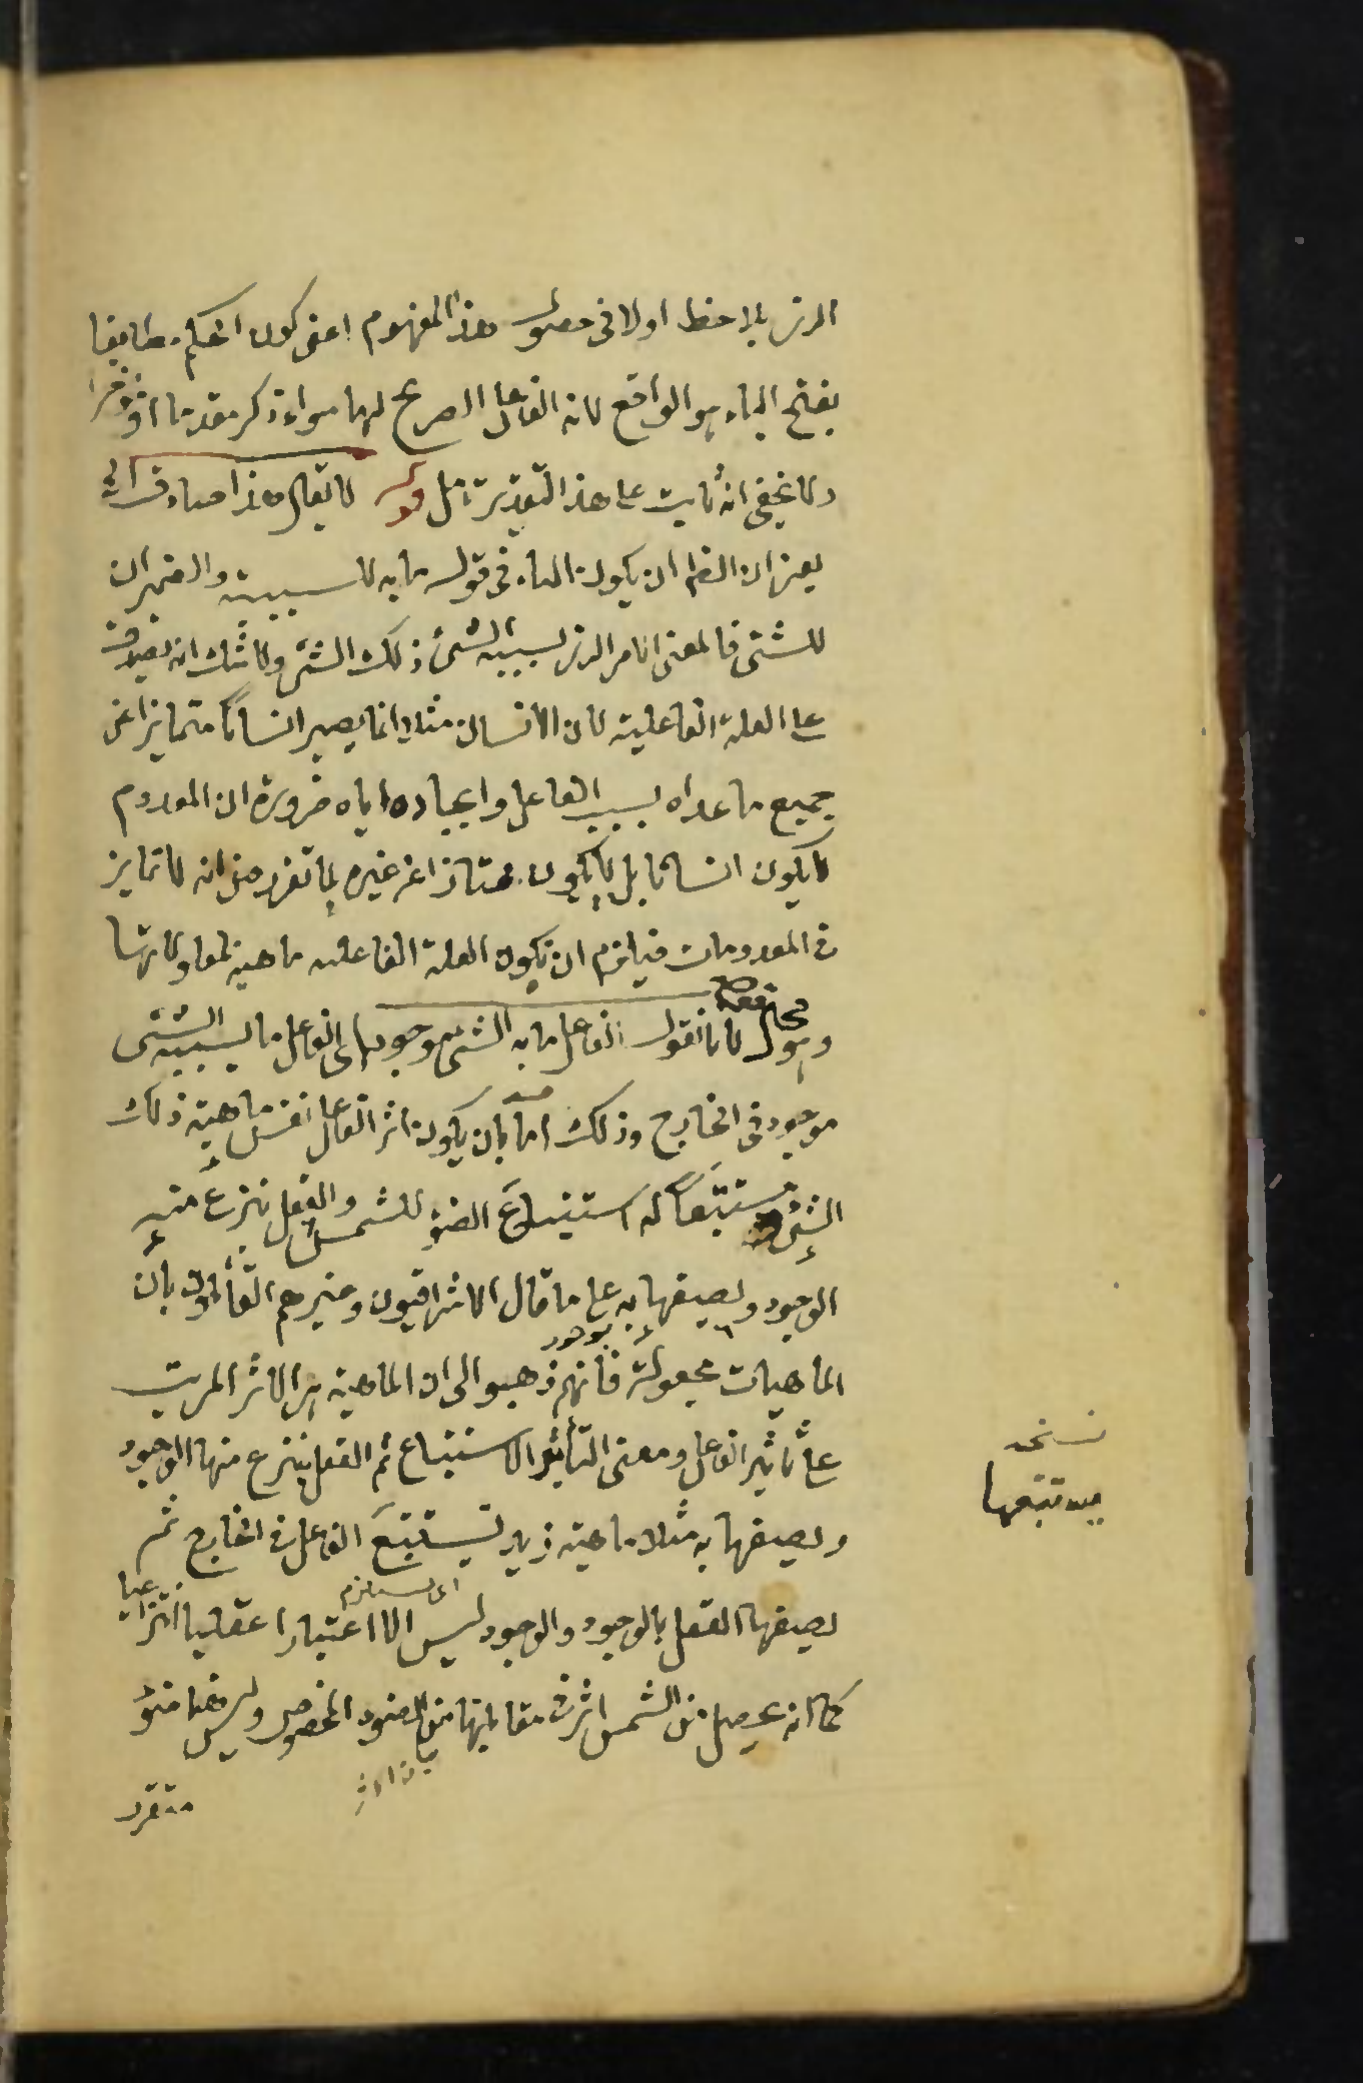 الذى يلاحظ اولا فى حصول هذا المفهوم اعنى كون الحكم مطابقا
بفتح الباء هو الواقع لانه الفاعل الصريح لها سواء ذكر مقدما او مؤخرا
ولا يخفى انه ثابت على هذا التقدير تامل قوله لا يقال هذا صادق الخ
يعنى ان الظ ان يكون الباء فى قوله ما به للسببية والضميران
للشئ فالمعنى الامر الذى بسببه الشئ ذلك الشئ ولا شك انه يصدق
على العلة الفاعلية لان الانسان مثلا انما يصير انسانا متمايزا عن
جميع ما عداه بسبب الفاعل وايجاده اياه ضرورة ان المعدوم
لا يكون انسانا بل لا يكون ممتازا عن غيره لما تقرر من انه لا تمايز
فى المعدومات فيلزم ان يكون العلة الفاعلية ماهية لمعلولاتها
وهو مح قوله لانا نقول الفاعل ما به الشئ موجود اى الفاعل ما بسببه الشئ
موجود فى الخارج وذلك اما بان يكون اثر الفاعل نفس ماهية ذلك
الشئ مستتبعا له استتباع الضوء للشمس والعقل ينزع منه
الوجود ويصفها به على ما قال الاشراقيون وغيرهم القائلون بان
الماهيات مجعولة فانهم ذهبوا الى ان الماهية هى الاثر المرتب
على تاثير الفاعل ومعنى التأثير الاستتباع ثم العقل ينتزع منها الوجود
ويصفها به مثلا ماهية زيد يستتبع الفاعل فى الخارج ثم
يصفها العقل بالوجود والوجود ليس الا اعتبارا عقليا انتزاعيا
اى يستلزم
كما انه يحصل من الشمس اثر فى مقابلتها من الضوء المخصوص وليس هنا ضوء
متقرر
نسخه
يستتبعها